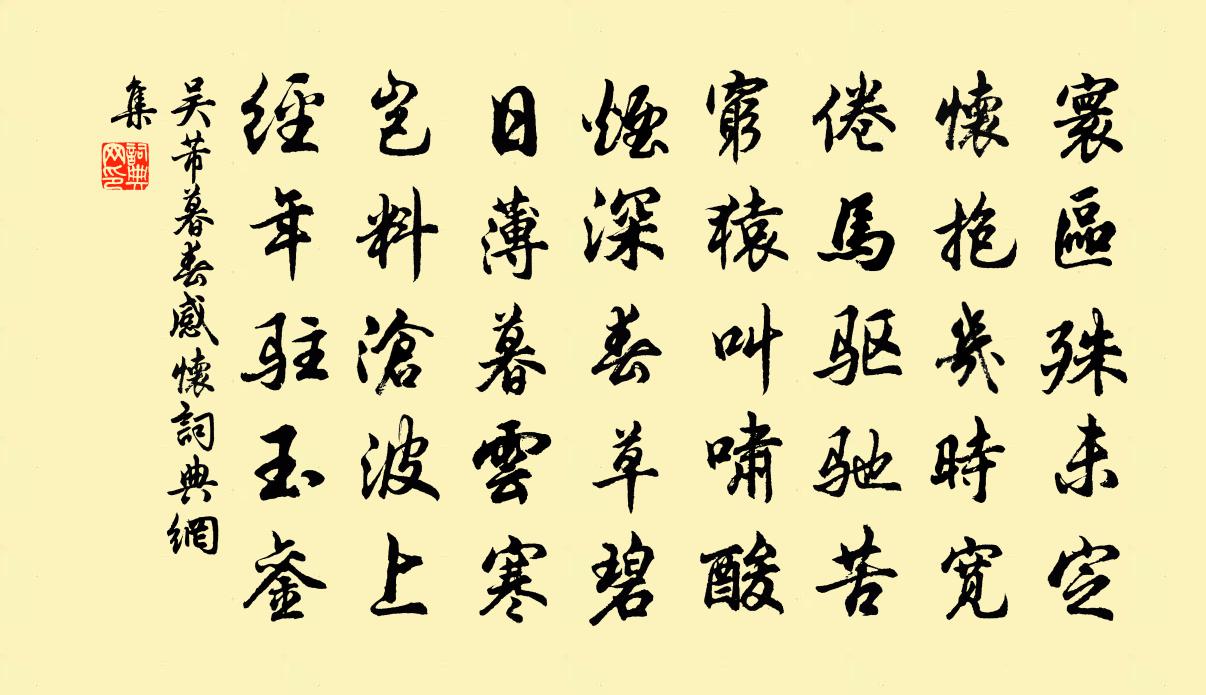 寰區殊未定
懷抱幾時寬
倦馬驱驰苦
窮猿叫嘯酸
煙深春草碧
日薄暮雲寒
豈料滄波上
經年駐玉鑾
吴芾暮春感懷詞典網
集
詞典網印